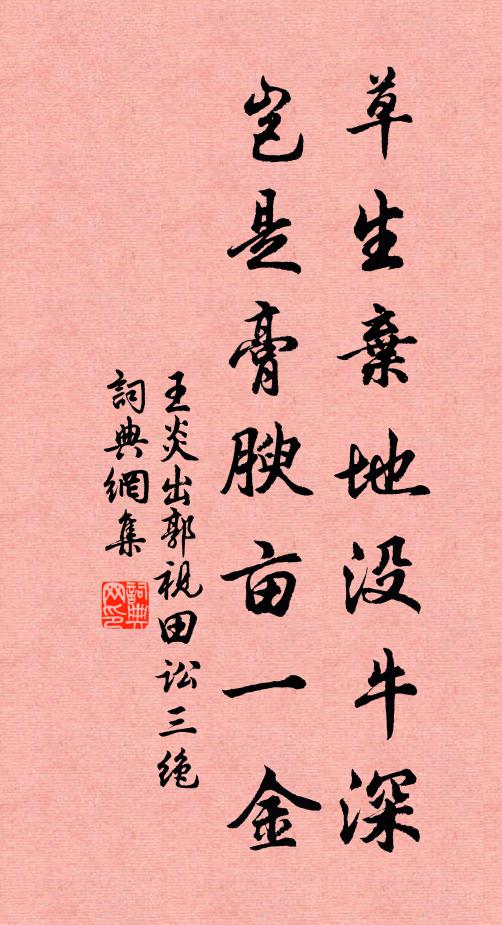 草生棄地没牛深
豈是膏腴亩一金
王炎出郭視田訟三绝
詞典網集
詞典网印